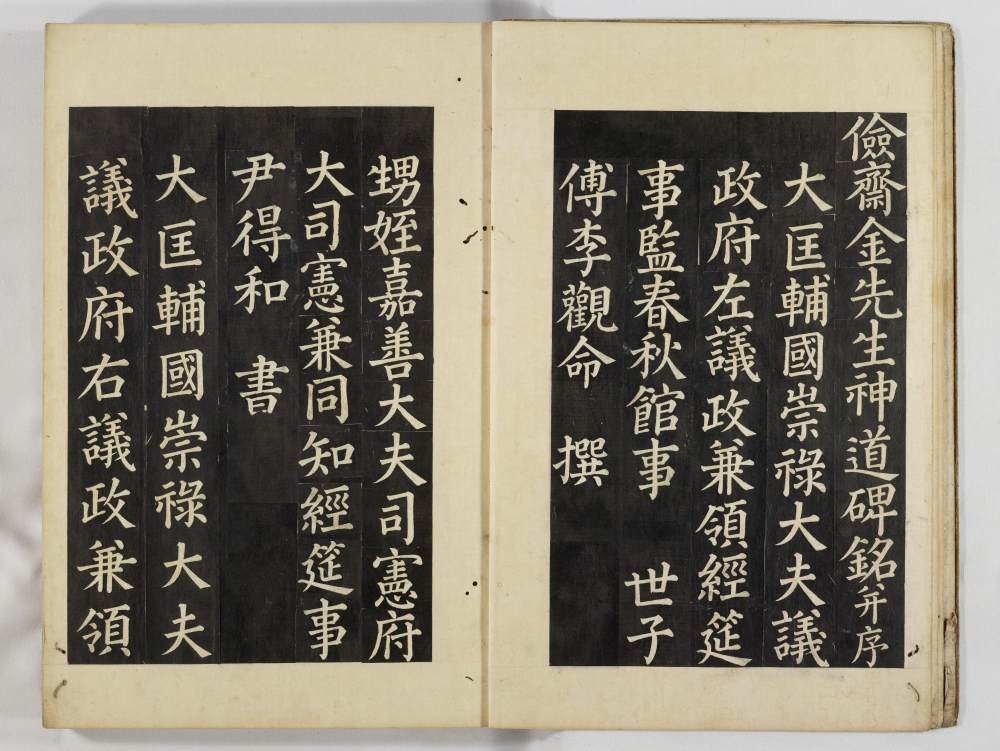 儉齋金先生神道碑銘并序
大匡輔國崇祿大夫議
政府左議政兼領經筵
事監春秋館事 世子
傅李觀命 撰
甥姪嘉善大夫司憲府
大司憲兼同知經筵事
尹得和 書
大匡輔國崇祿大夫
議政府右議政兼領